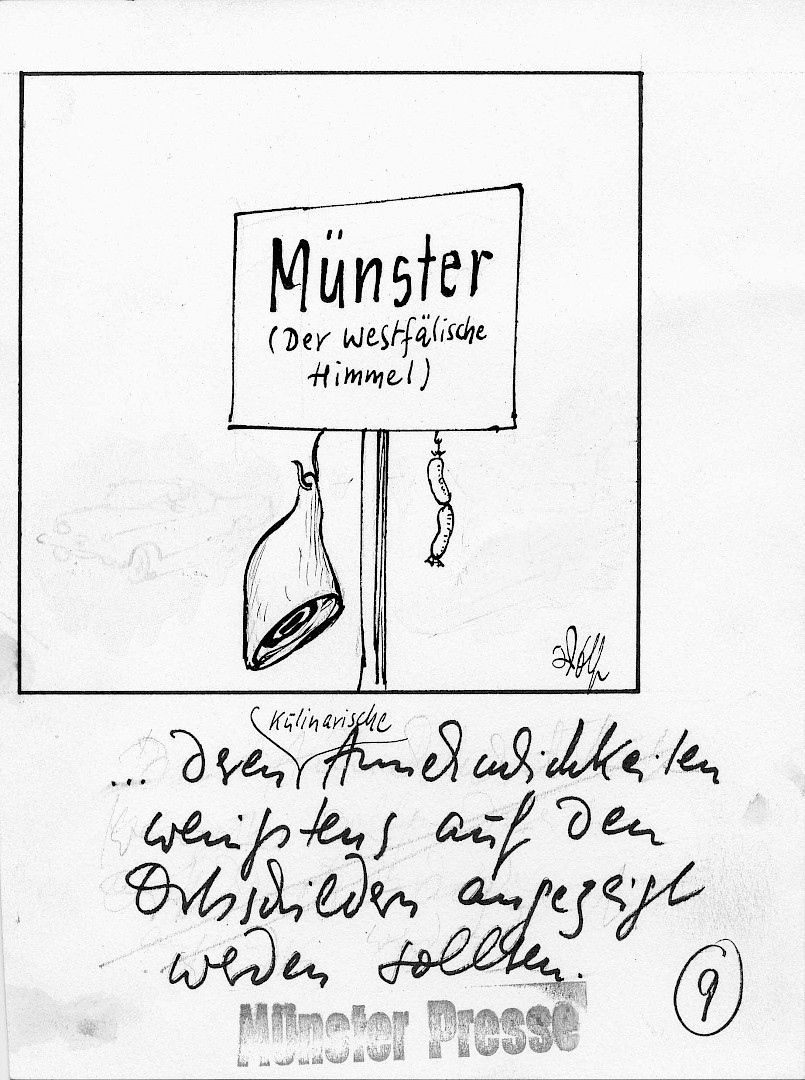 Münster
(Der westfälische
Himmel)
kulinarische
... deren Annehmlichkeiten
wenigstens auf den
Ortsschildern angezeigt
werden sollten.
9
Münster Presse